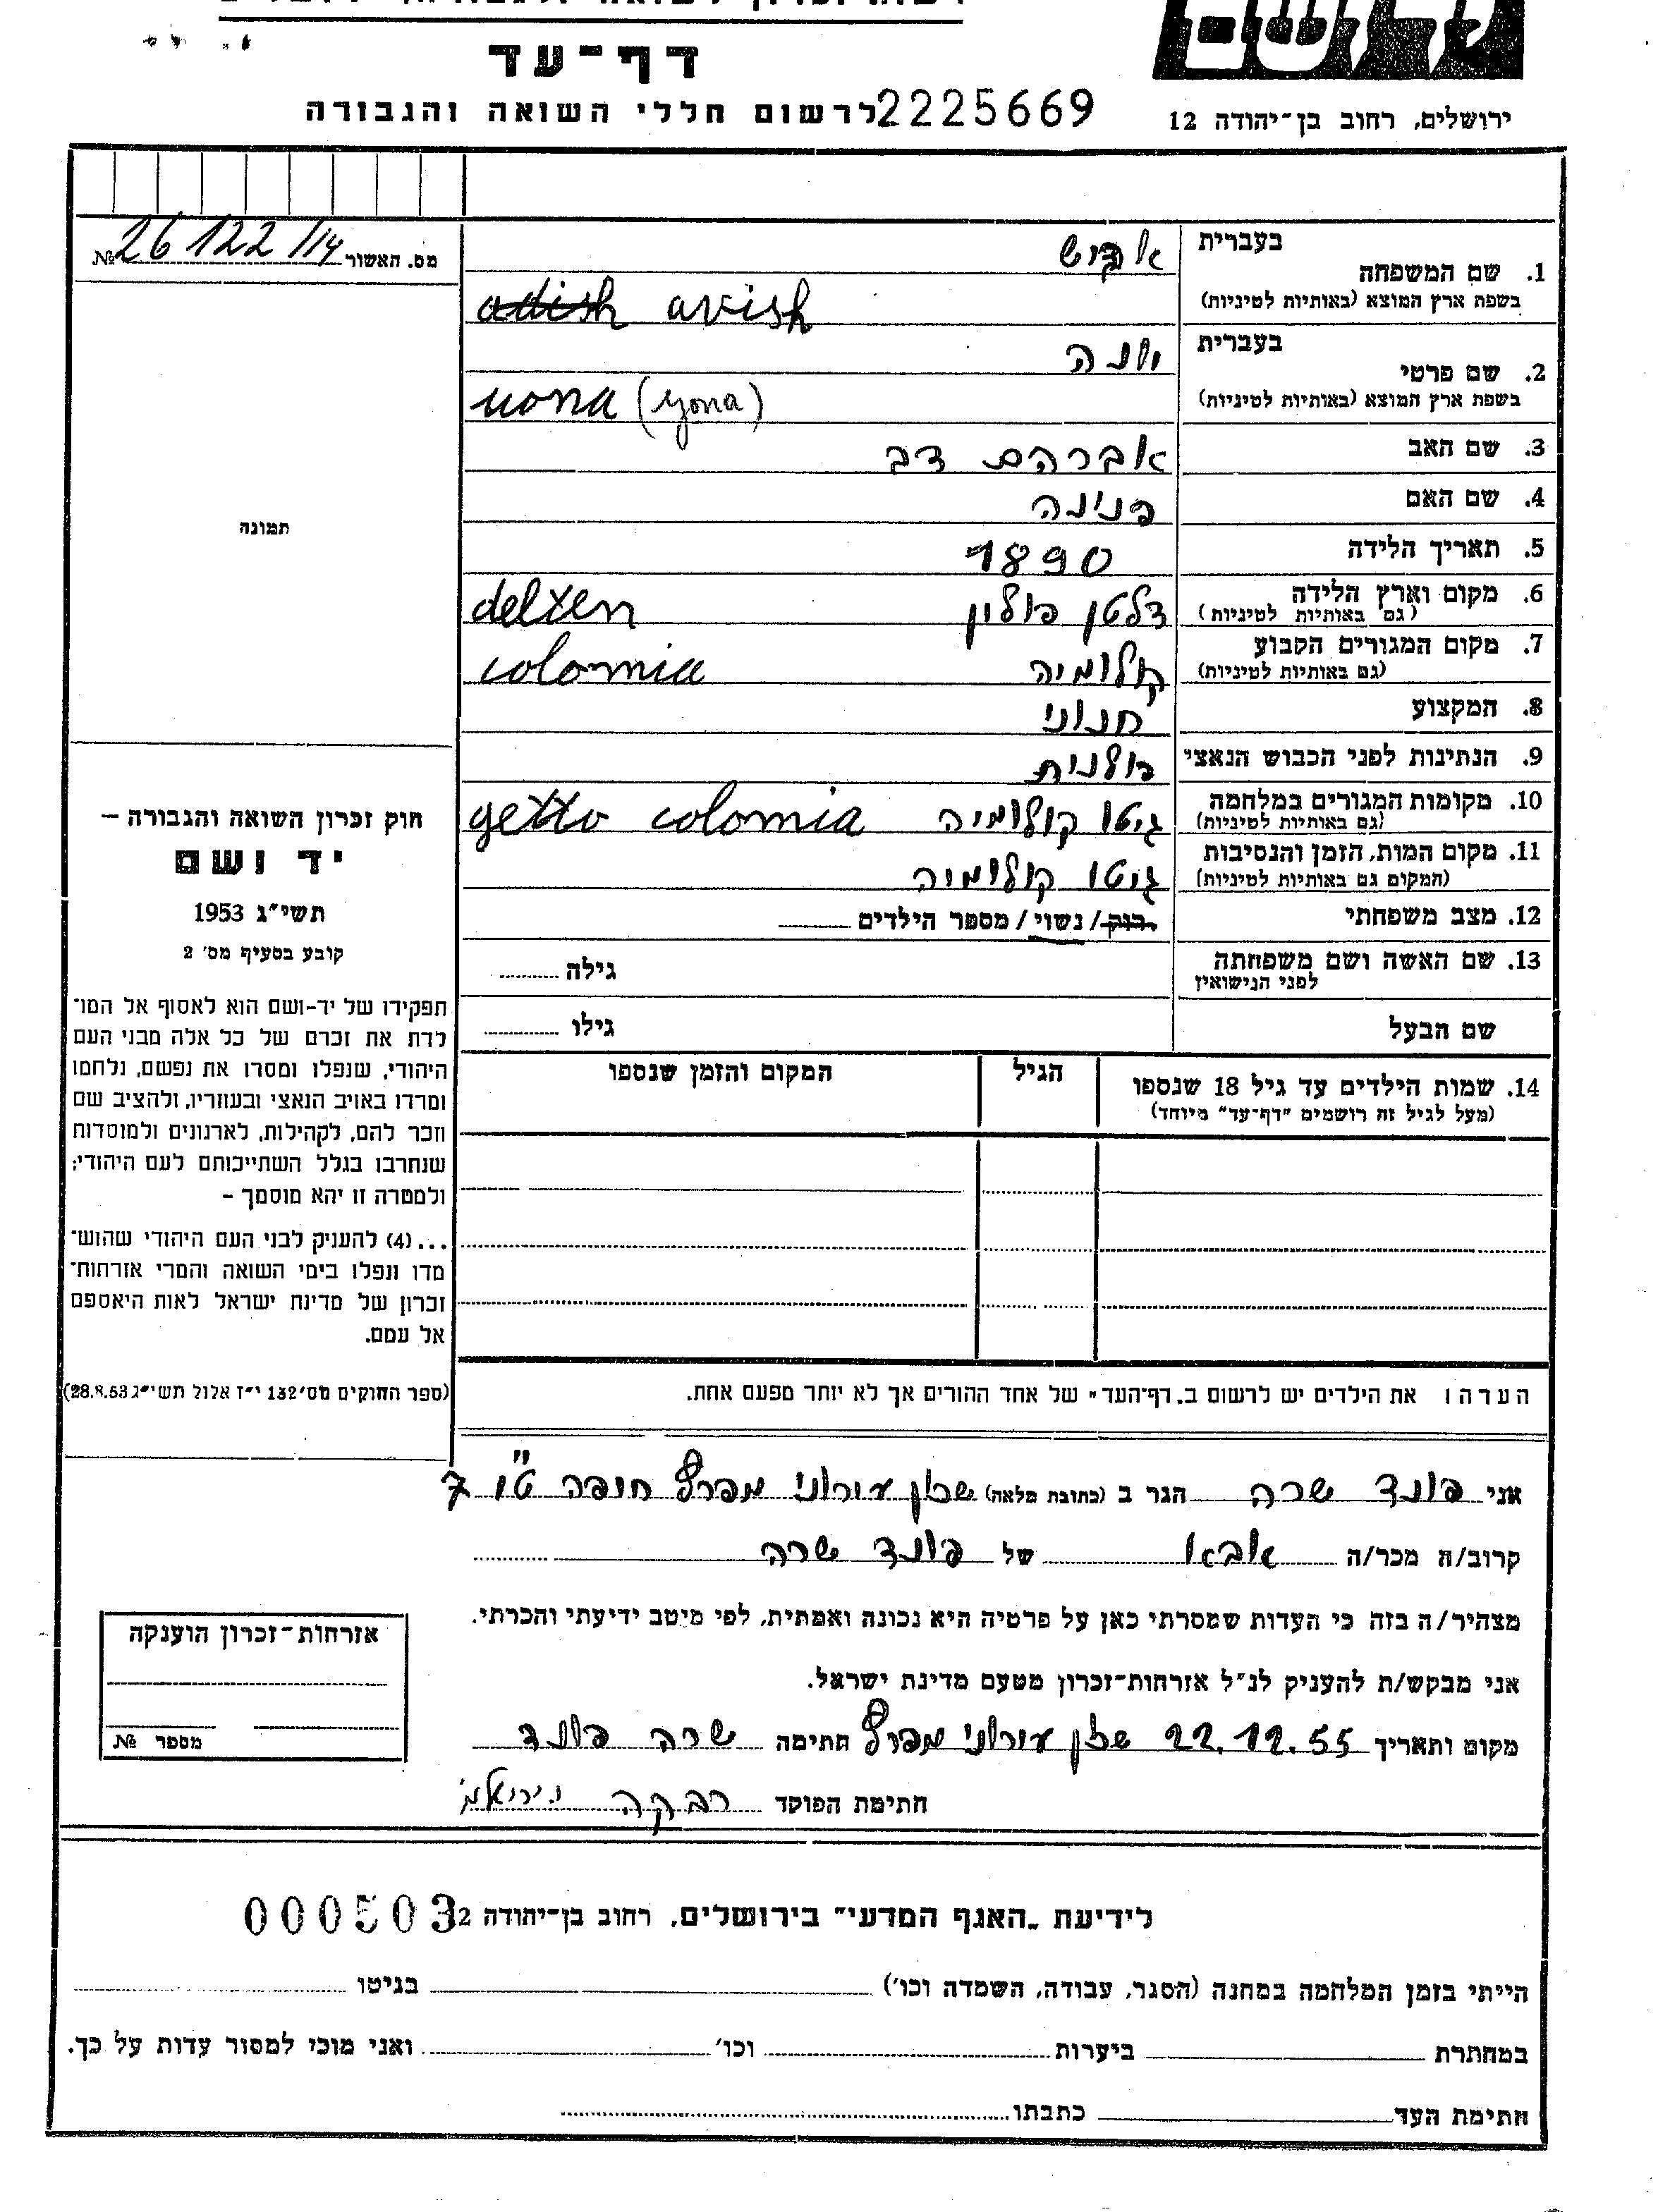 דף-עד
לרשום חללי השואה והגבורה 2225669
ירושלים, רחוב בן-יהודה 12
מס. האשור 26122/14 №
1. שם המשפחה
בעברית
בשפת ארץ המוצא (באותיות לטיניות) adish avish
2. שם פרטי
בעברית יונה
בשפת ארץ המוצא (באותיות לטיניות) uona (yona)
3. שם האב אברהם דב
4. שם האם פנינה
5. תאריך הלידה 1890
6. מקום וארץ הלידה דלטן פולין delten
(גם באותיות לטיניות)
7. מקום המגורים הקבוע קולומיה colomia
(גם באותיות לטיניות)
8. המקצוע חנוני
9. הנתינות לפני הכבוש הנאצי פולנית
10. מקומות המגורים במלחמה גיטו קולומיה getto colomia
(גם באותיות לטיניות)
11. מקום המות, הזמן והנסיבות גיטו קולומיה
(המקום גם באותיות לטיניות)
12. מצב משפחתי רווק/נשוי/מספר הילדים
13. שם האשה ושם משפחתה גילה
לפני הנישואין
שם הבעל גילו
14. שמות הילדים עד גיל 18 שנספו הגיל המקום והזמן שנספו
(מעל לגיל זה רושמים "דף-עד" מיוחד)
תמונה
חוק זכרון השואה והגבורה –
יד ושם
תשי"ג 1953
קובע בסעיף מס' 2
תפקידו של יד-ושם הוא לאסוף אל המו-
לדת את זכרם של כל אלה מבני העם
היהודי, שנפלו ומסרו את נפשם, נלחמו
ומרדו באויב הנאצי ובעוזריו, ולהציב שם
וזכר להם, לקהילות, לארגונים ולמוסדות
שנחרבו בגלל השתייכותם לעם היהודי;
ולמטרה זו יהא מוסמך –
...(4) להעניק לבני העם היהודי שהוש-
מדו ונפלו בימי השואה והמרי אזרחות-
זכרון של מדינת ישראל לאות היאספם
אל עמם.
(ספר החוקים מס' 132 י"ז אלול תשי"ג 28.8.53)
הערה: את הילדים יש לרשום ב"דף-העד" של אחד ההורים אך לא יותר מפעם אחת.
אני פונד שרה הגר ב (כתובת מלאה) שכון עירוני מפרץ חיפה ט"ו 7
קרוב/ה מכר/ה של פונד שרה
מצהיר/ה בזה כי העדות שמסרתי כאן על פרטיה היא נכונה ואמתית, לפי מיטב ידיעתי והכרתי.
אני מבקש/ת להעניק לנ"ל אזרחות-זכרון מטעם מדינת ישראל.
מקום ותאריך 22.12.55 שכון עירוני מפרץ חתימה שרה פונד
חתימת הפוקד רבקה
אזרחות-זכרון הוענקה
מספר №
לידיעת "האגף המדעי" בירושלים, רחוב בן-יהודה 2 000503
הייתי בזמן המלחמה במחנה (הסגר, עבודה, השמדה וכו') בגיטו
במחתרת ביערות וכו' ואני מוכן למסור עדות על כך.
חתימת העד כתבתו